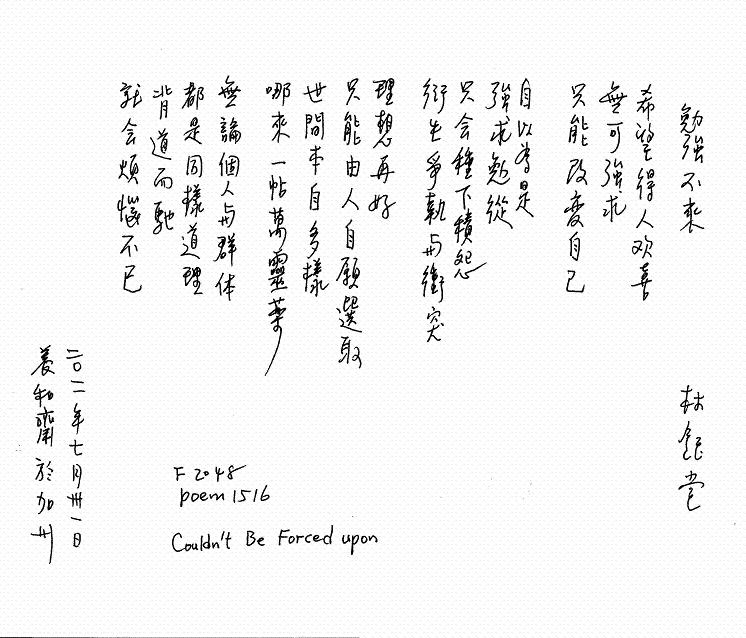 勉強不來
林鈺堂
希望得人欢喜
無可強求
只能改变自己
自以為是
強求勉從
只会種下積怨
衍生爭執与衝突
理想再好
只能由人自願選取
世間本自多樣
哪來一帖萬靈藥
無論個人与群体
都是同樣道理
背道而馳
就会煩惱不已
二〇一一年七月卅一日
養和齋於加州
F2048
poem 1516
Couldn't Be Forced upon